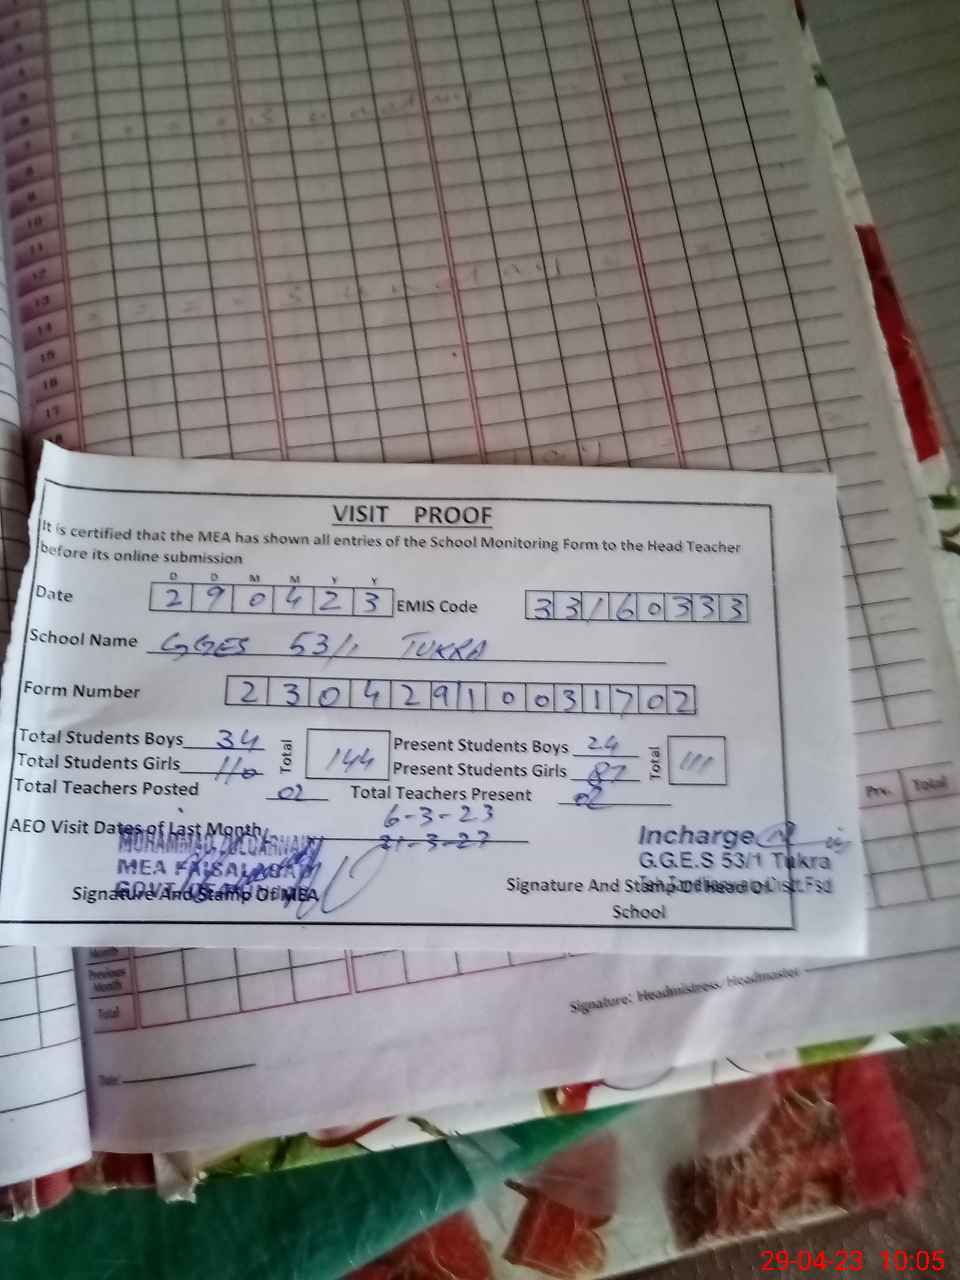 VISIT PROOF
It is certified that the MEA has shown all entries of the School Monitoring Form to the Head Teacher
before its online submission
D D M M Y Y
Date 290423 EMIS Code 33160333
School Name GGES 53/1 TUKRA
Form Number 23042910031702
Total Students Boys 34 Total 144 Present Students Boys 24 Total 111
Total Students Girls 110 Present Students Girls 87
Total Teachers Posted 02 Total Teachers Present 02
6-3-23
AEO Visit Dates of Last Month 21-3-23
MUHAMMAD ZULQARNAIN
MEA FAISALABAD
Signature And Stamp Of MEA
Incharge
G.G.E.S 53/1 Tukra
Signature And Stamp Of Head Of
School
7
8
9
10
11
12
13
14
15
16
17
Prv. Total
Month
Previous
Month
Total
Signature: Headmistress/Headmaster
Date:
29-04-23 10:05